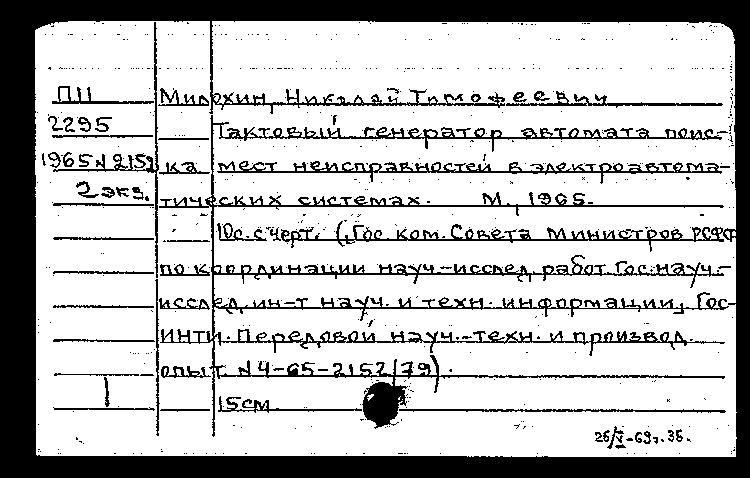 П11 Милохин, Николай Тимофеевич
2295 Тактовый генератор автомата поис-
1965 N 2152 ка мест неисправностей в электроавтома-
2 экз. тических системах. М., 1965.
10с. с черт. (Гос. ком. Совета Министров РСФСР
по координации науч.-исслед. работ. Гос. науч.-
исслед. ин-т науч. и техн. информации, Гос-
ИНТИ. Передовой науч.-техн. и производ.
опыт. N 4-65-2152/79).
1 15см